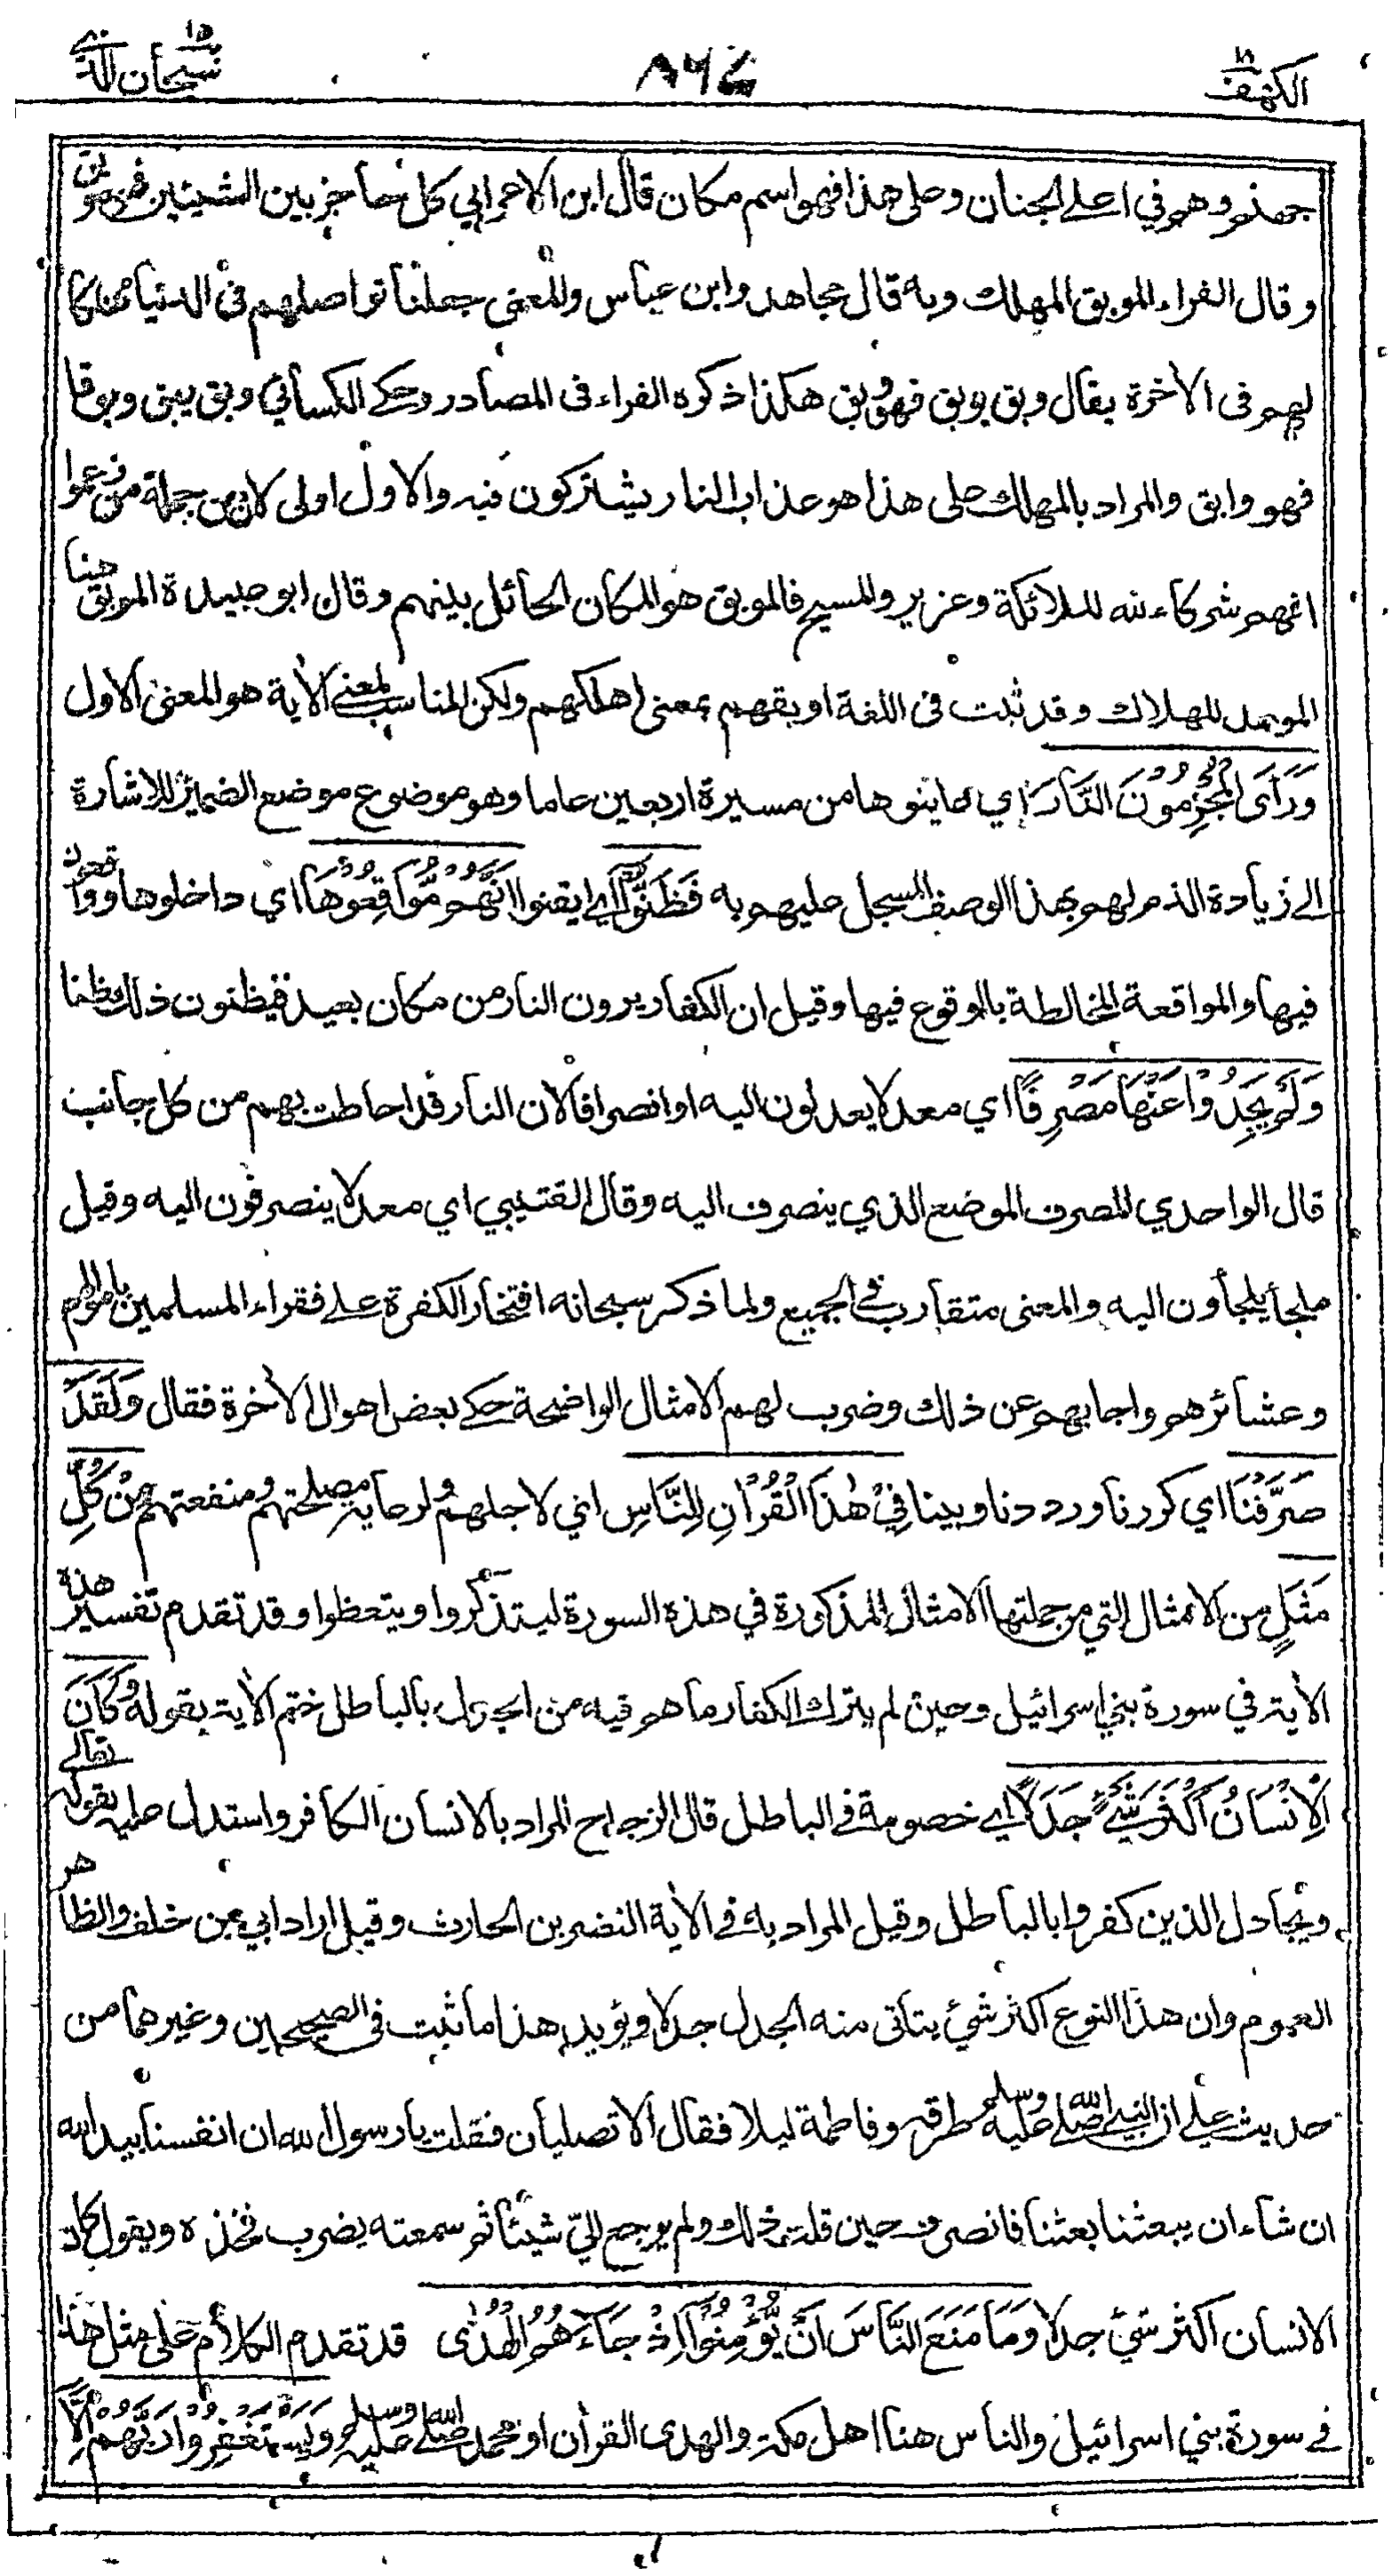 الكهف ١٨
٨٦٤
سبحان الذي ١٥
جهنم وهو في اعلى الجنان وعلى هذا فهو اسم مكان قال ابن الاعرابي كل حاجز بين الشيئين فهو موبق
وقال الفراء الموبق المهلك وبه قال مجاهد وابن عباس والمعنى جعلنا تواصلهم في الدنيا مهلكا
لهم في الأخرة يقال وبق يوبق فهو وبق هكذا ذكره الفراء في المصادر وحكى الكسائي وبق يبق وبوقا
فهو وابق والمراد بالمهلك على هذا هو عذاب النار يشتركون فيه والاول اولى لان من جملة من زعموا
انهم شركاء لله الملائكة وعزير والمسيح فالموبق هو المكان الحائل بينهم وقال ابو عبيدة الموبق هنا
الموعد للهلاك وقد ثبت في اللغة اوبقهم بمعنى اهلكهم ولكن المناسب لمعنى الأية هو المعنى الاول
وَرَأَى الْمُجْرِمُونَ النَّارَ اي عاينوها من مسيرة اربعين عاما وهو موضوع موضع الضمير للاشارة
الى زيادة الذم لهم بهذا الوصف المسجل عليهم به فَظَنُّوا اي ايقنوا اَنَّهُمْ مُّوَاقِعُوْهَا اي داخلوها وواقعون
فيها والمواقعة المخالطة بالوقوع فيها وقيل ان الكفار يرون النار من مكان بعيد فيظنون ذلك ظنا
وَلَمْ يَجِدُوْا عَنْهَا مَصْرِفًا اي معدلا يعدلون اليه او انصرافا لان النار قد احاطت بهم من كل جانب
قال الواحدي المصرف الموضع الذي ينصرف اليه وقال القتيبي اي معدلا ينصرفون اليه وقيل
ملجأ يلجأون اليه والمعنى متقارب في الجميع ولما ذكر سبحانه افتخار الكفرة على فقراء المسلمين باموالهم
وعشائرهم واجابهم عن ذلك وضرب لهم الامثال الواضحة حكى بعض اهوال الأخرة فقال وَلَقَدْ
صَرَّفْنَا اي كررنا ورددنا وبينا فِيْ هٰذَا الْقُرْاٰنِ لِلنَّاسِ اي لاجلهم ولرعاية مصلحتهم ومنفعتهم مِنْ كُلِّ
مَثَلٍ من الامثال التي من جملتها الامثال المذكورة في هذه السورة ليتذكروا ويتعظوا وقد تقدم تفسير هذه
الأية في سورة بني اسرائيل وحين لم يترك الكفار ما هم فيه من الجدل بالباطل ختم الأية بقوله وَكَانَ
الْاِنْسَانُ اَكْثَرَ شَيْءٍ جَدَلًا اي خصومة في الباطل قال الزجاج المراد بالانسان الكافر واستدل عليه بقوله تعالى
ويجادل الذين كفروا بالباطل وقيل المراد به في الأية النضر بن الحارث وقيل اراد ابي بن خلف والظاهر
العموم وان هذا النوع اكثر شئ يتأتى منه الجدل جدلا ويؤيد هذا ما ثبت في الصحيحين وغيرهما من
حديث علي ان النبي صلى الله عليه وسلم طرقه وفاطمة ليلا فقال ألا تصليان فقلت يا رسول الله ان انفسنا بيد الله
ان شاء ان يبعثنا بعثنا فانصرف حين قلت ذلك ولم يرجع اليّ شيئا ثم سمعته يضرب فخذه ويقول وكان
الانسان اكثر شئ جدلا وَمَا مَنَعَ النَّاسَ اَنْ يُّؤْمِنُوْا اِذْ جَاءَهُمُ الْهُدٰى قد تقدم الكلام على مثل هذا
في سورة بني اسرائيل والناس هنا اهل مكة والهدى القرأن او محمد صلى الله عليه وسلم وَيَسْتَغْفِرُوْا رَبَّهُمْ اِلَّا